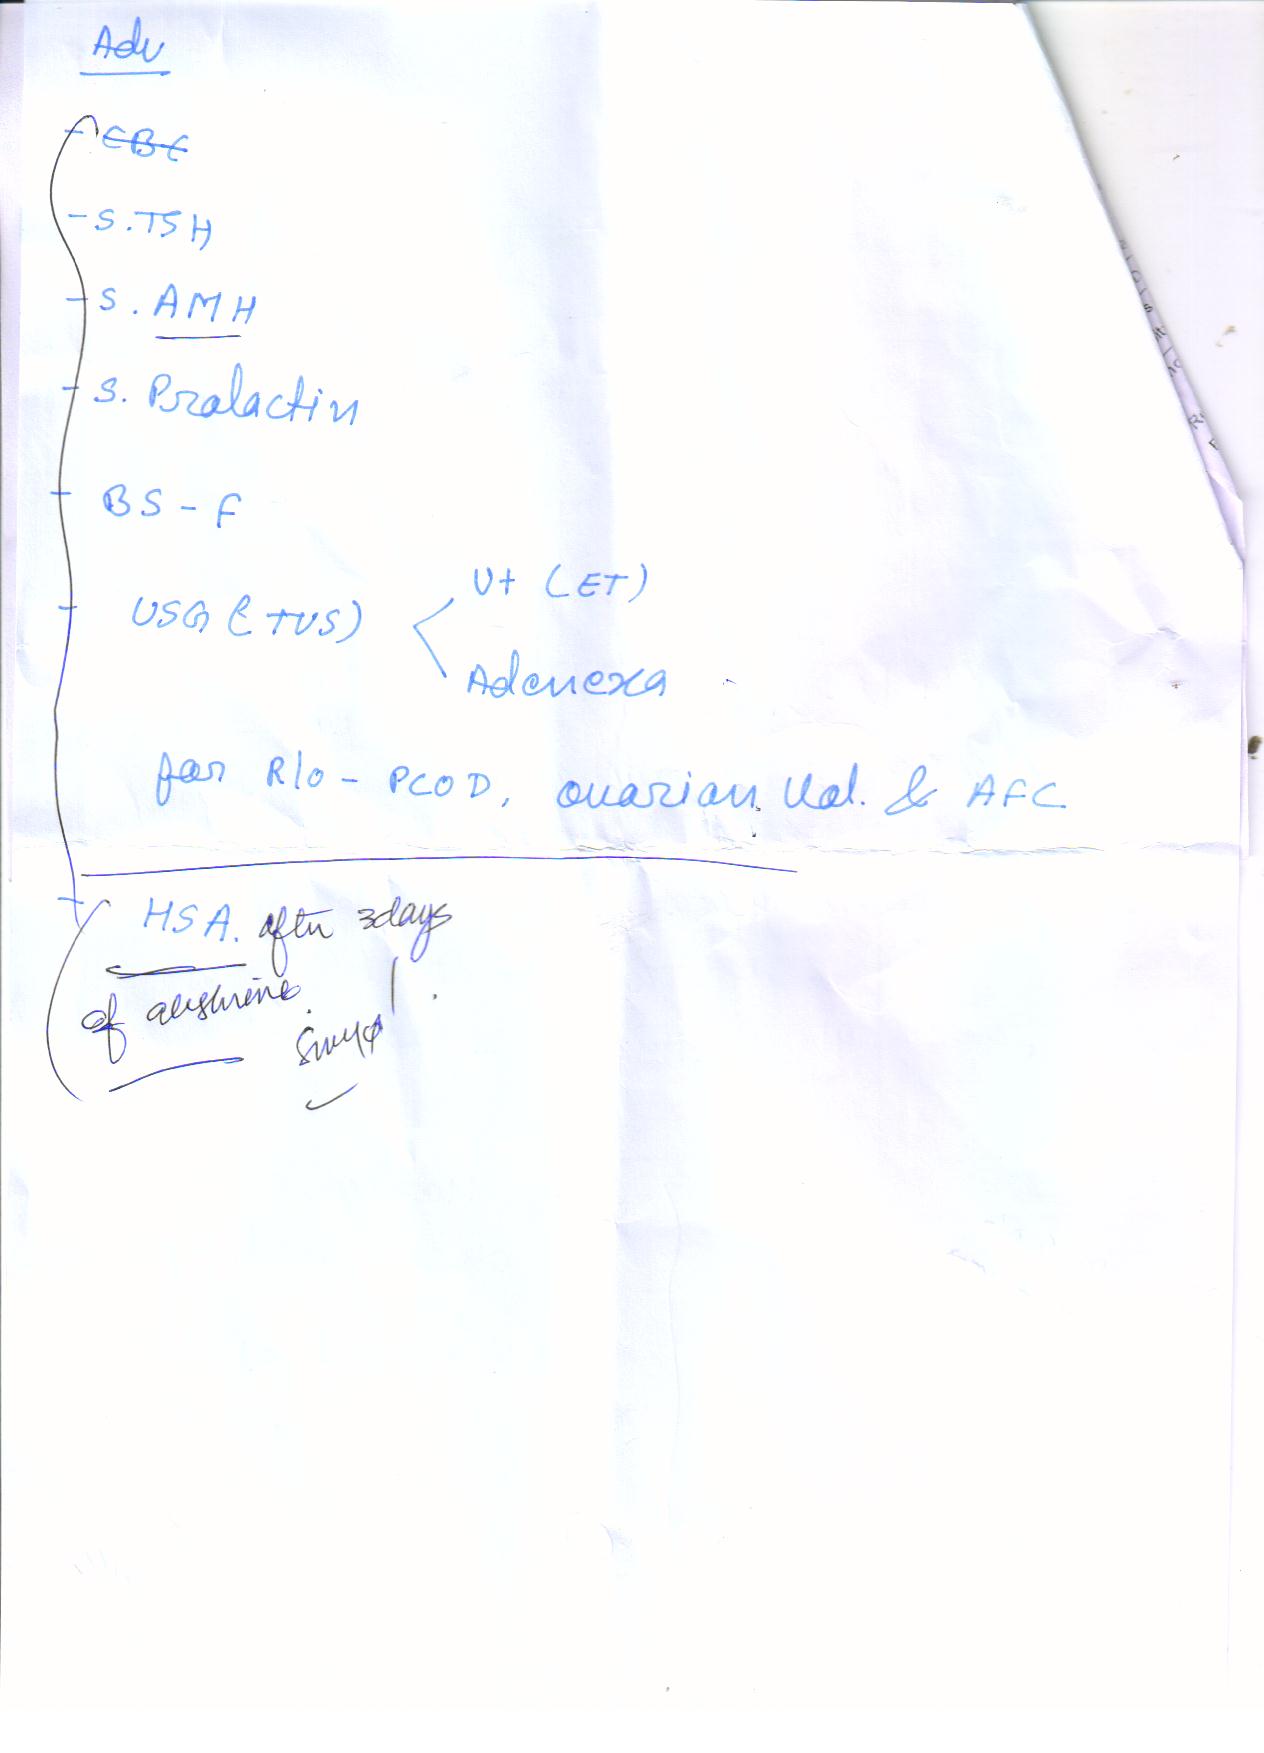 Adv
- CBC
- S. TSH
- S. AMH
- S. Prolactin
- BS - F
- USG (TVS)
Ut (ET)
Adenexa
for R/o - PCOD, ovarian Vol. & AFC
- HSA. after 3days
of